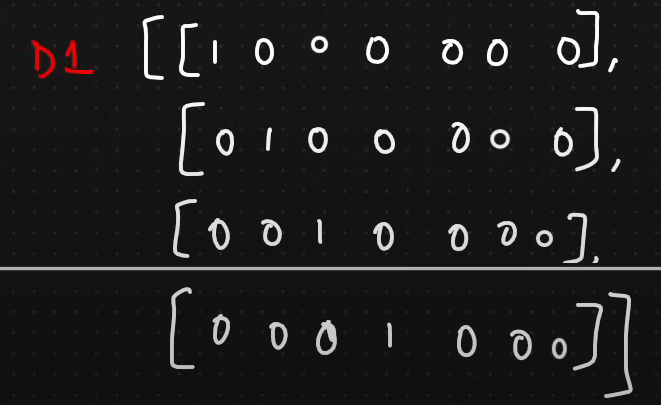 D1 [[1 0 0 0 0 0 0],
[0 1 0 0 0 0 0],
[0 0 1 0 0 0 0],
[0 0 0 1 0 0 0]]